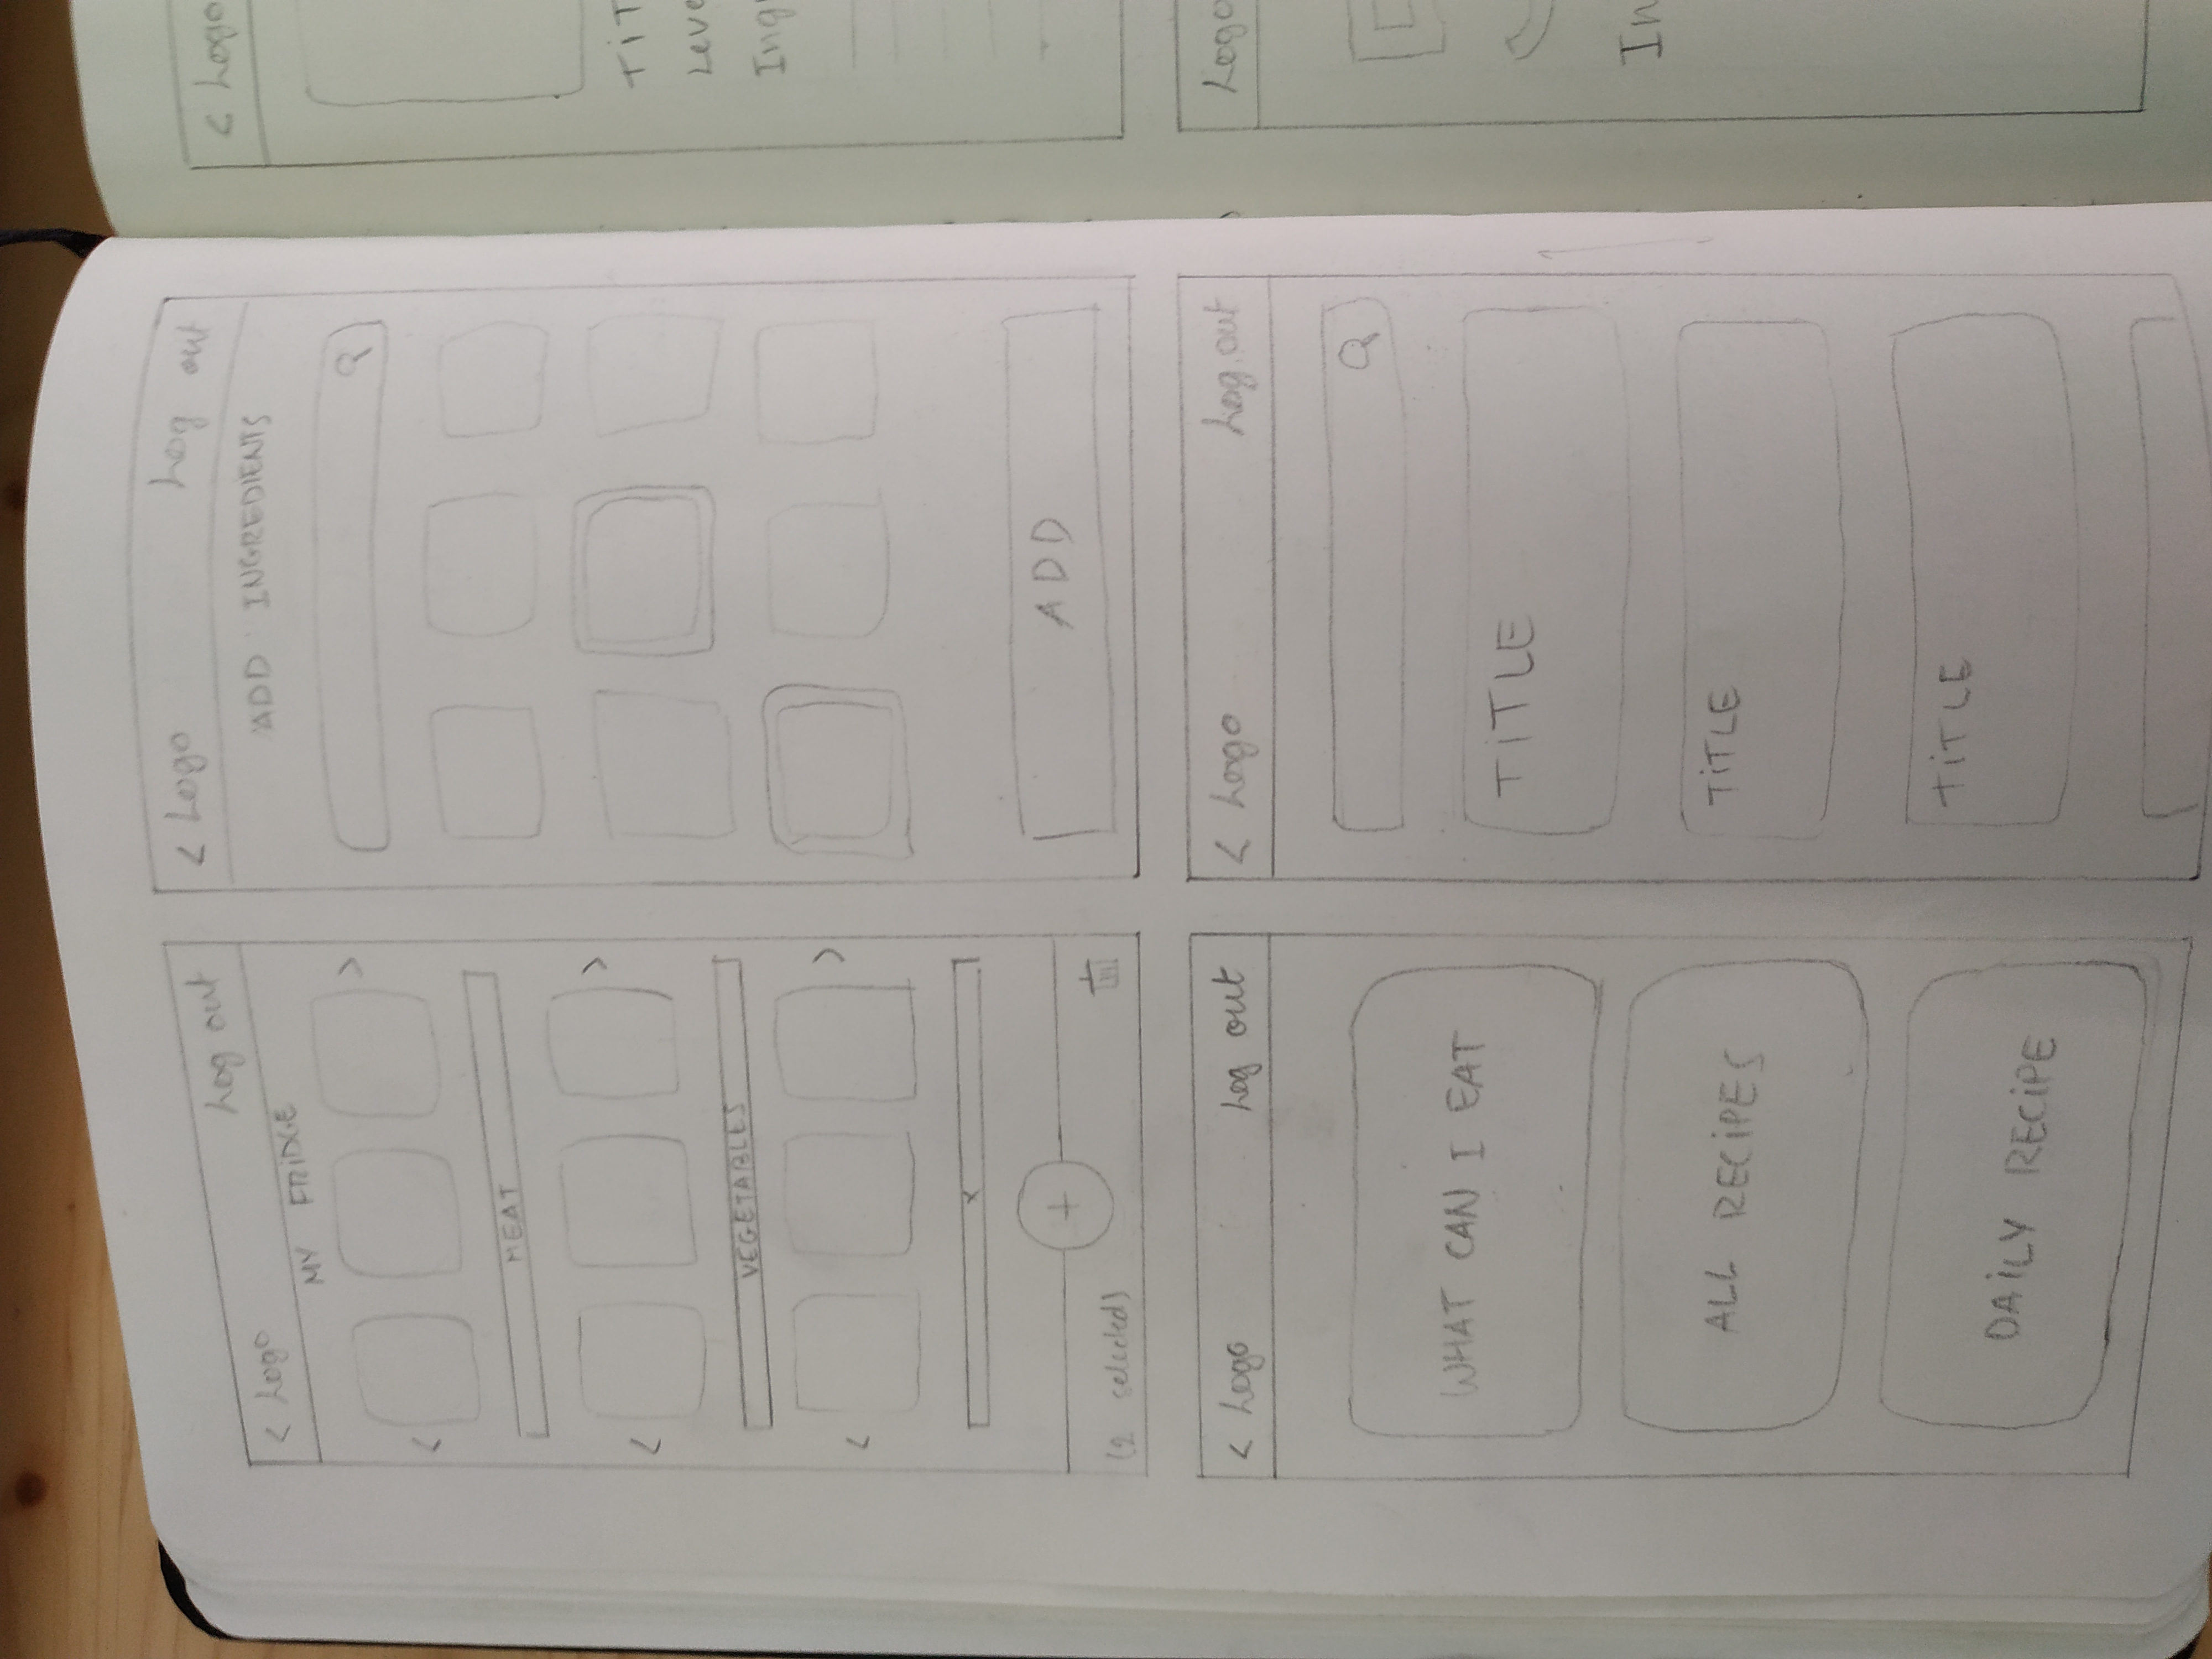 < Logo Log out
MY FRIDGE
< >
MEAT
< >
VEGETABLES
< >
x
+
(2 selected)
< Logo Log out
ADD INGREDIENTS
ADD
< Logo Log out
WHAT CAN I EAT
ALL RECiPES
DAiLY RECiPE
< Logo Log out
TiTLE
TiTLE
TiTLE
< Logo
TiT
Leve
Ing
Logo
In